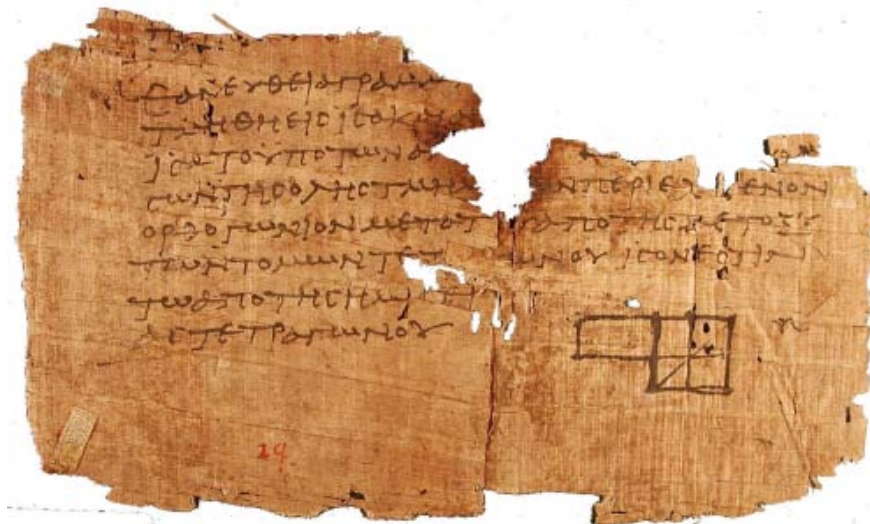 ΕΑΝΕΥΘΕΙΑΓΡΑΜΜ
ΤΜΗΘΗΕΙϹΙϹΑΚΑΙ
ΙϹΑΤΟΥΠΟΤΩΝΑ
ϹΩΝΤΗϹΟΛΗϹΤΜΗΜ ΩΝΠΕΡΙΕΧ ΜΕΝΟΝ
ΟΡΘΟΓΩΝΙΟΝΜΕΤΑΤΟΥΑΠΟΤΗϹΜΕΤΟΞΥ
ΤΩΝΤΟΜΩΝΤΕΤ ΩΝΟΥΙϹΟΝΕϹΤΙΝ
ΤΩΑΠΟΤΗϹΗΜΙ
ΑϹΤΕΤΡΑΓΩΝΟΥ
29